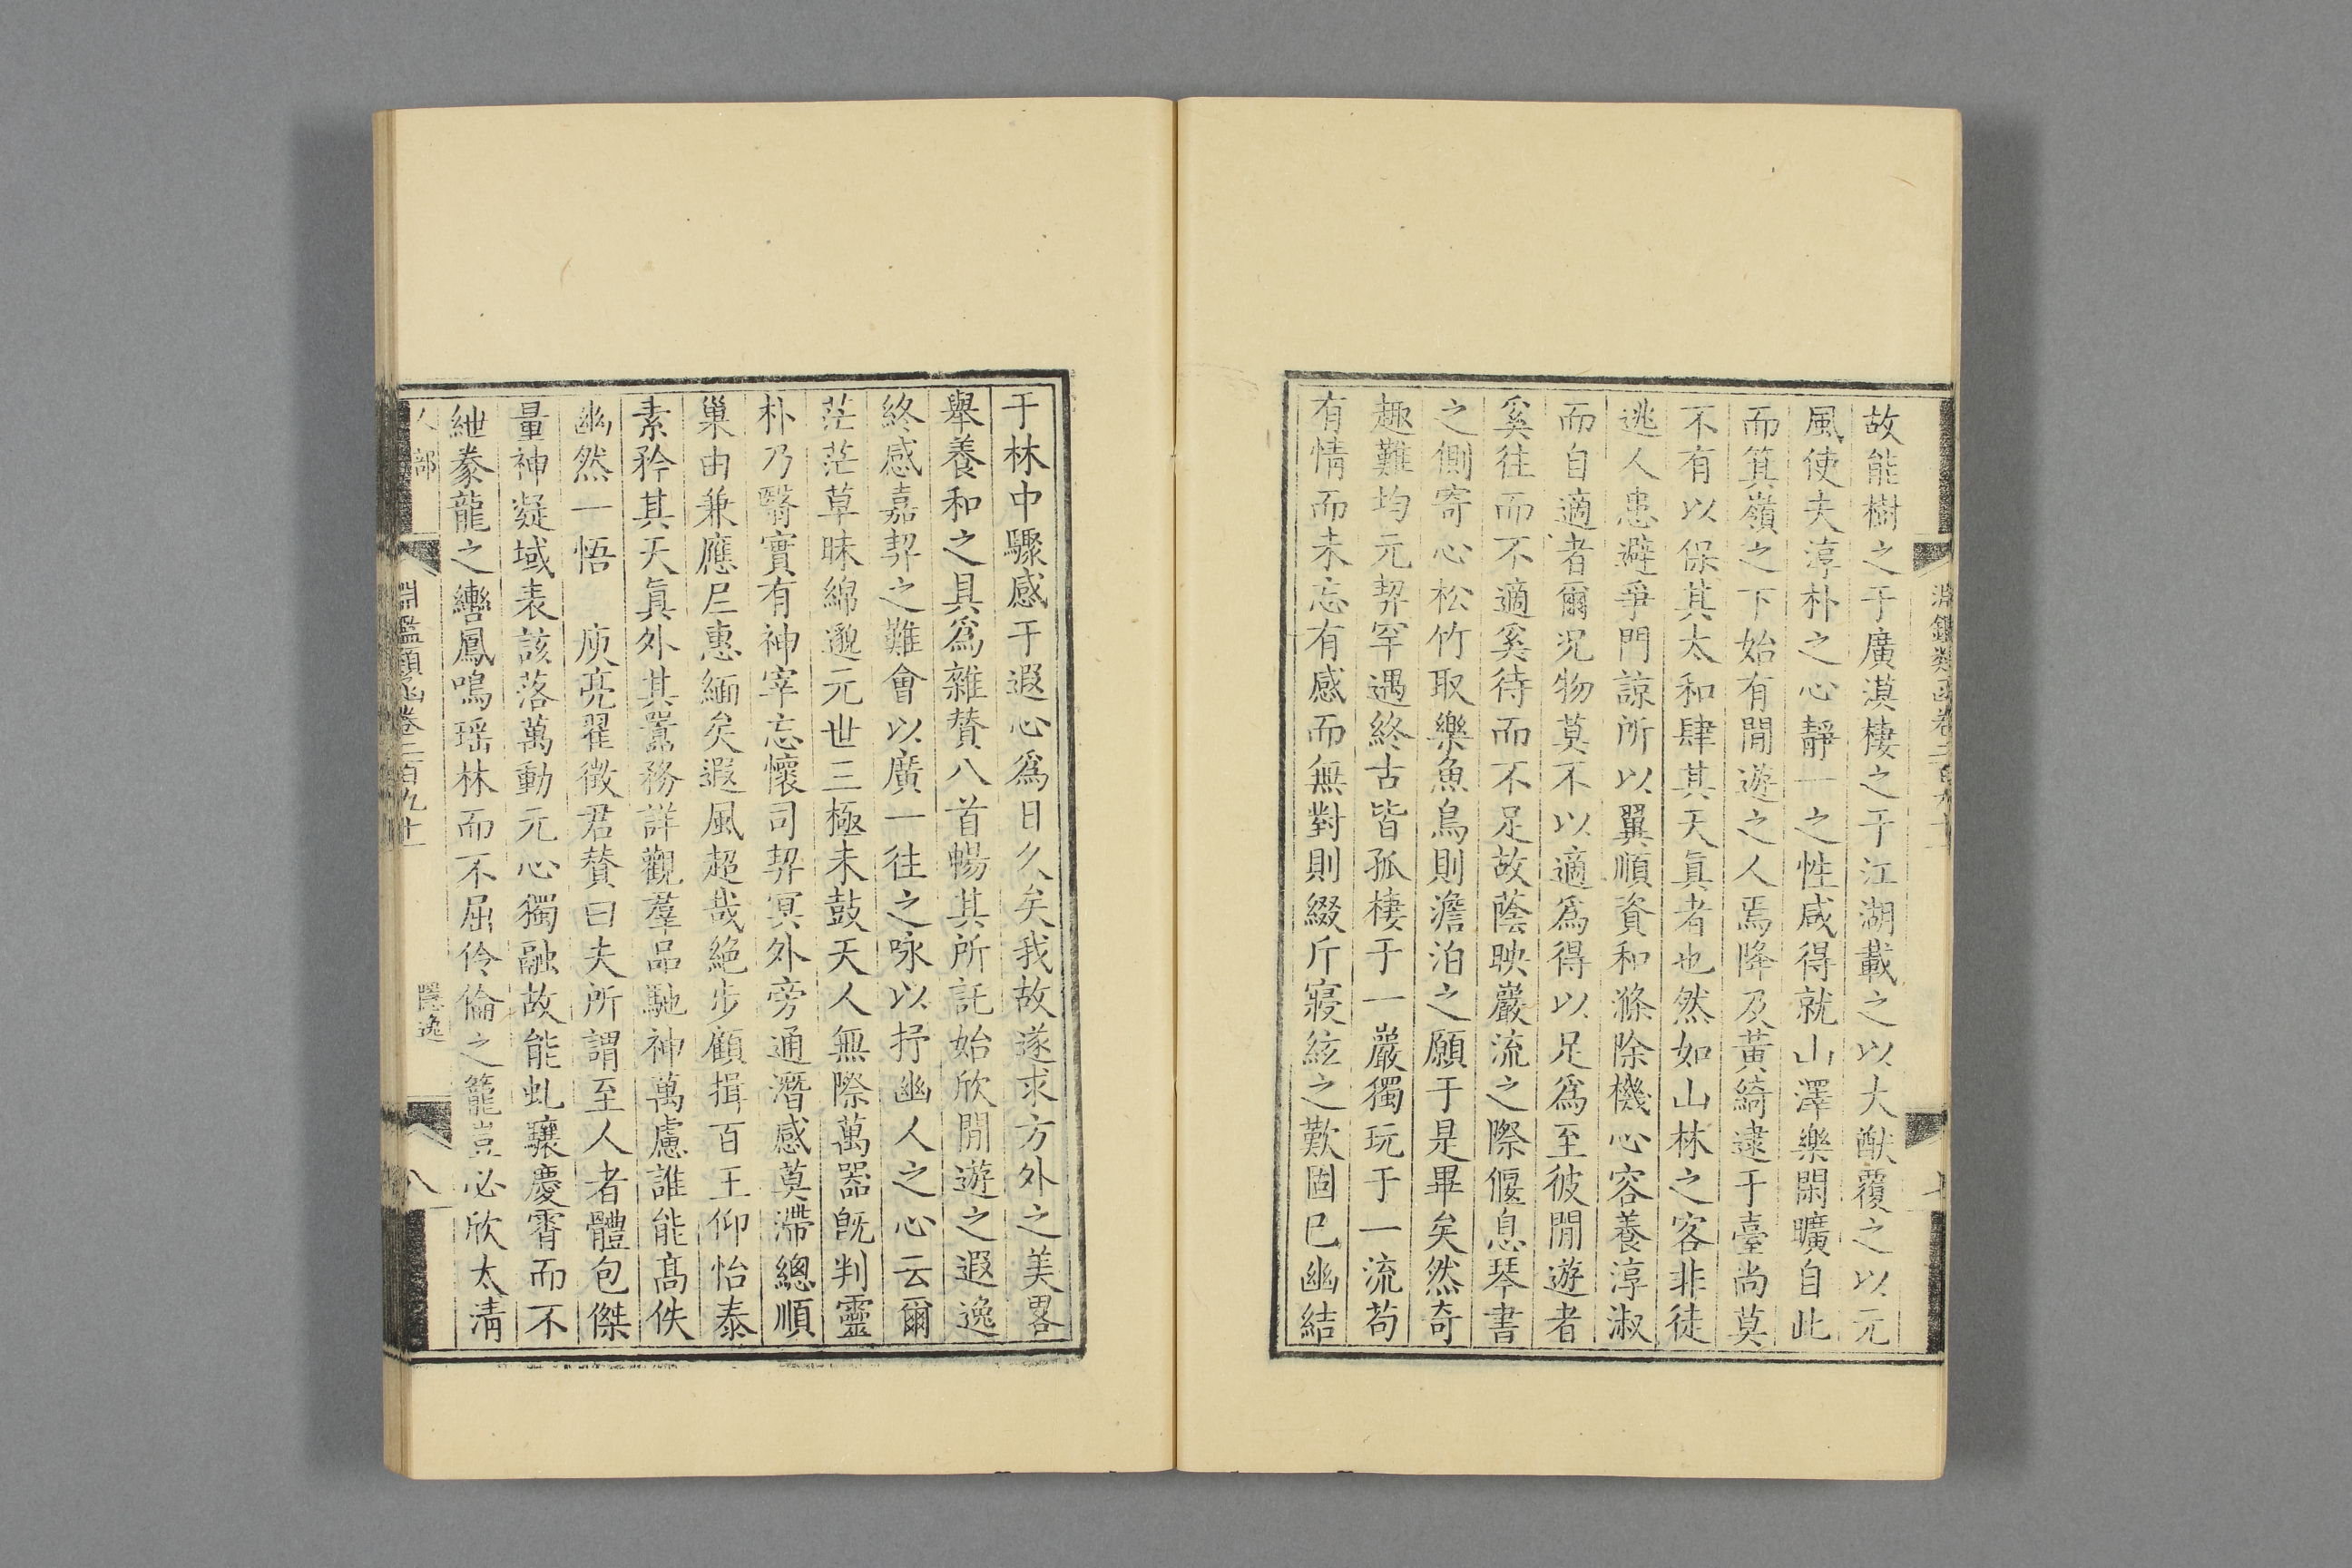 故能樹之于廣漠棲之于江湖載之以大猷覆之以元
風使夫淳朴之心靜一之性咸得就山澤樂閑曠自此
而箕嶺之下始有閒遊之人焉降及黃綺逮于臺尚莫
不有以保其太和肆其天眞者也然如山林之客非徒
逃人患避爭門諒所以翼順資和滌除機心容養淳淑
而自適者爾况物莫不以適爲得以足爲至彼閒遊者
奚往而不適奚待而不足故蔭映巖流之際偃息琴書
之側寄心松竹取樂魚鳥則澹泊之願于是畢矣然奇
趣難均元契罕遇終古皆孤棲于一巖獨玩于一流苟
有情而未忘有感而無對則綴斤寢絃之歎固已幽結
于林中驟感于遐心爲日久矣我故遂求方外之美畧
舉養和之具爲雜賛八首暢其所託始欣閒遊之遐逸
終感嘉契之難會以廣一往之咏以抒幽人之心云爾
茫茫草昧綿邈元世三極未鼓天人無際萬器旣判靈
朴乃翳實有神宰忘懷司契冥外旁通潛感莫滯總順
巢由兼應尼惠緬矣遐風超哉絶步顧揖百王仰怡泰
素矜其天眞外其囂務詳觀羣品馳神萬慮誰能高佚
幽然一悟　庾亮翟徵君賛曰夫所謂至人者體包傑
量神凝域表該落萬動元心獨融故能虬驤慶霄而不
紲豢龍之轡鳳鳴瑶林而不屈伶倫之籠豈必欣太清
人部
淵鑑類函卷二百九十
隱逸
八